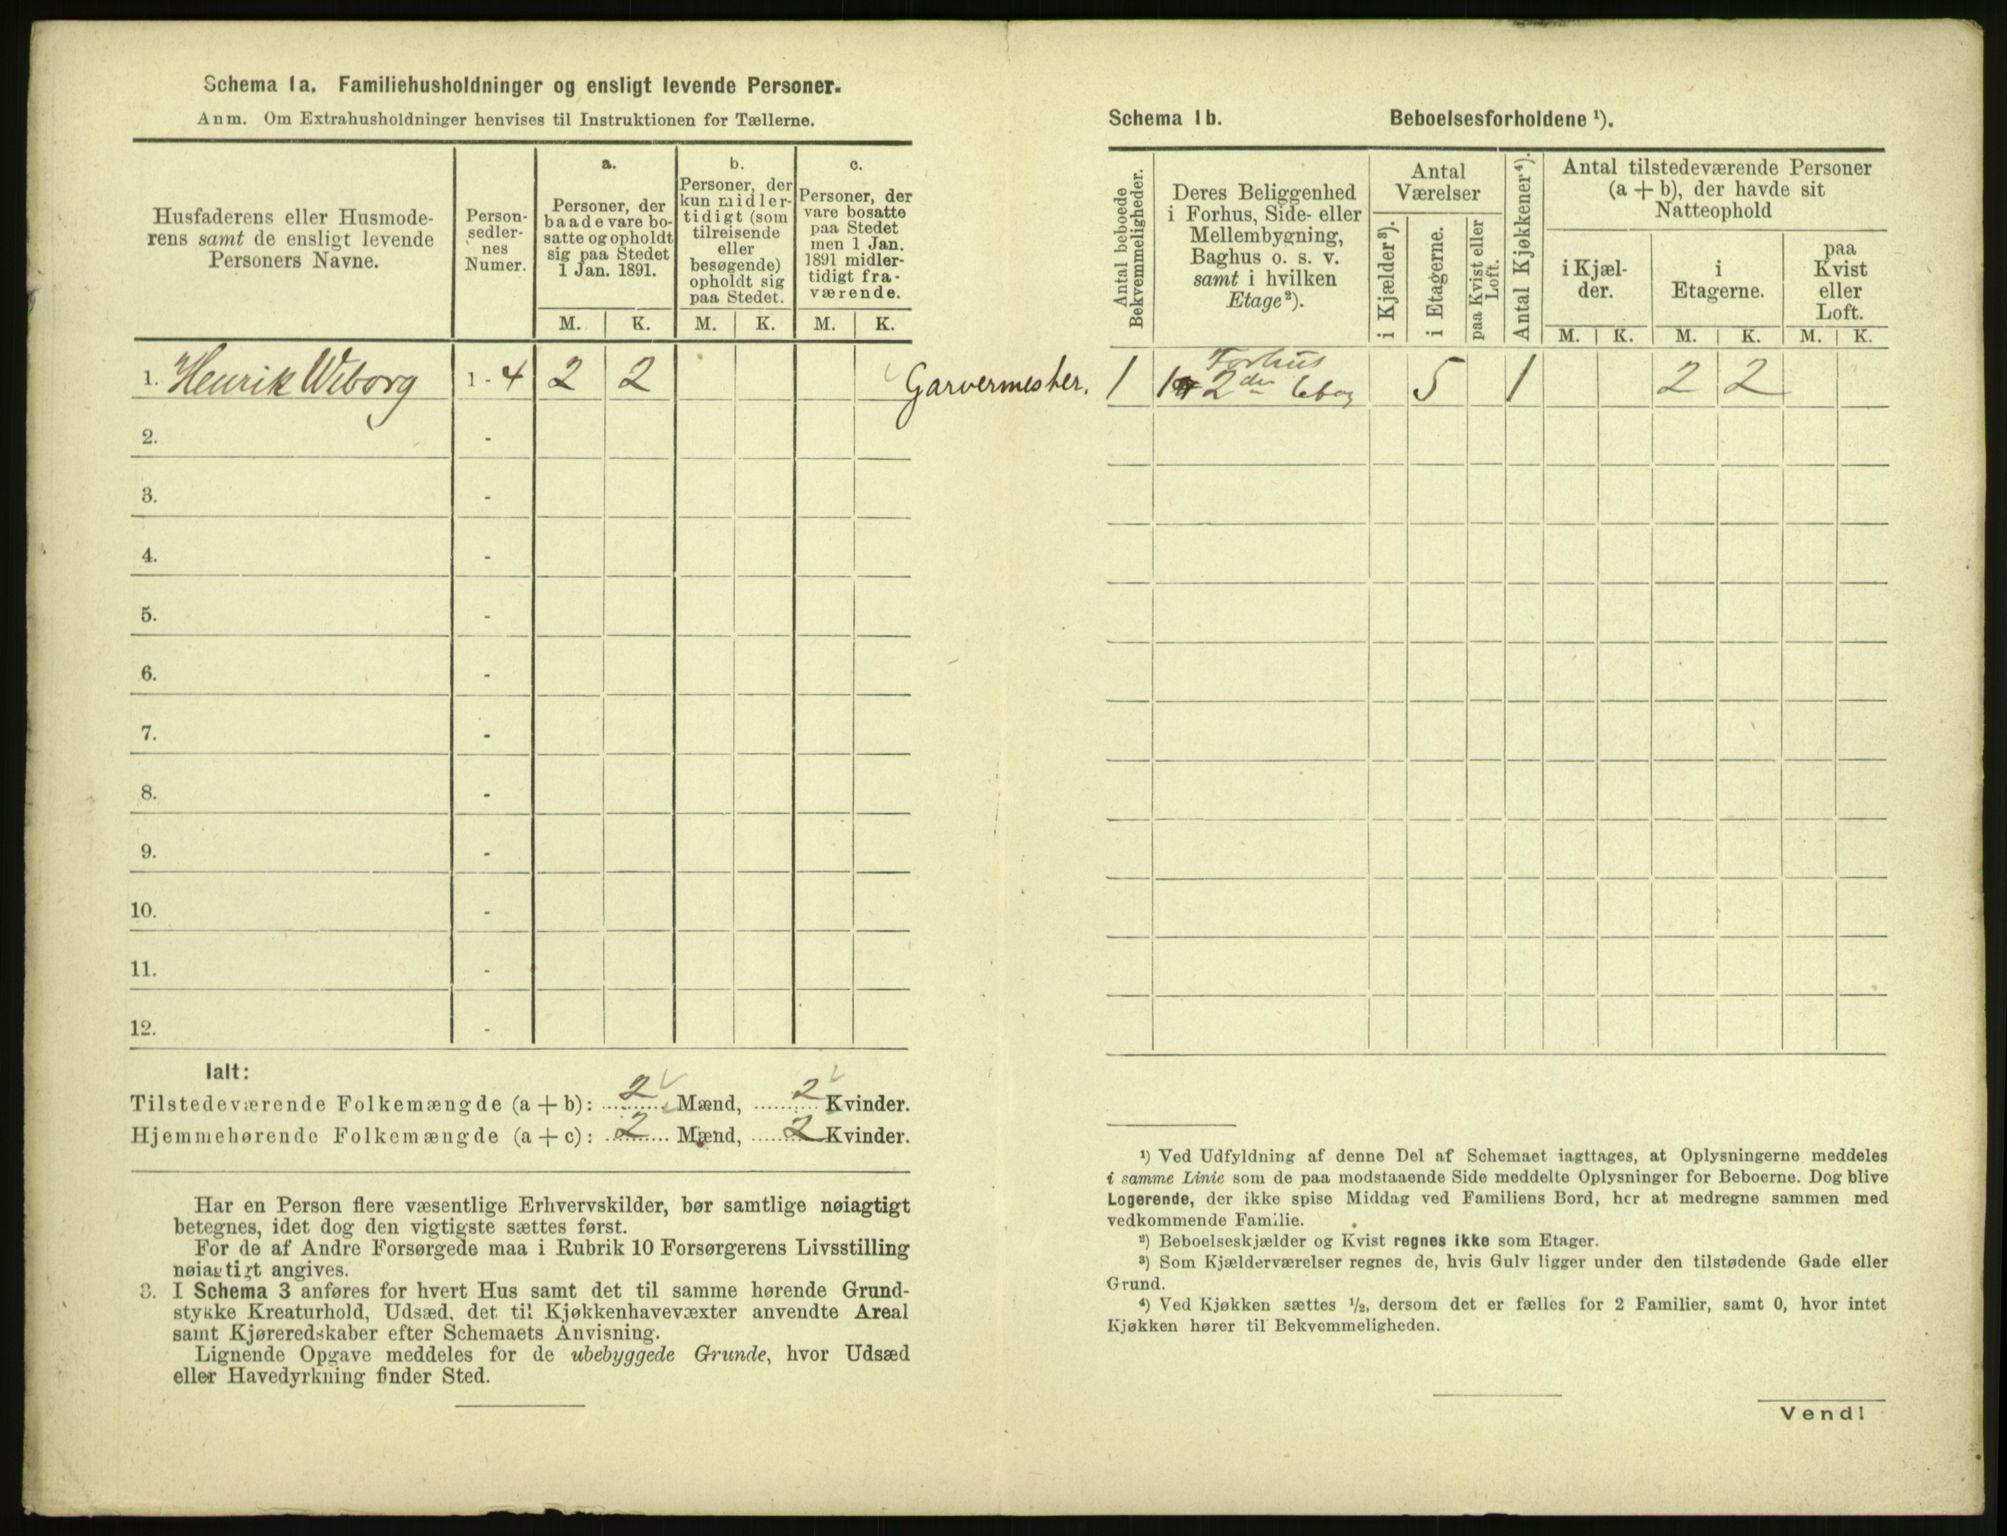 Schema 1a. Familiehusholdninger og ensligt levende Personer.
Anm. Om Extrahusholdninger henvises til Instruktionen for Tællerne.
Husfaderens eller Husmode-
rens samt de ensligt levende
Personers Navne.
Person-
sedler-
nes
Numer.
a.
Personer, der
baade vare bo-
satte og opholdt
sig paa Stedet
1 Jan. 1891.
b.
Personer, der
kun midler-
tidigt (som
tilreisende
eller
besøgende)
opholdt sig
paa Stedet.
c.
Personer, der
vare bosatte
paa Stedet
men 1 Jan.
1891 midler-
tidigt fra-
værende.
M. K. M. K. M. K.
1. Henrik Wiborg 1 - 4 2 2 Garvermester.
2. -
3. -
4. -
5. -
6. -
7. -
8. -
9. -
10. -
11. -
12. -
Ialt:
Tilstedeværende Folkemængde (a + b): 2 Mænd, 2 Kvinder.
Hjemmehørende Folkemængde (a + c): 2 Mænd, 2 Kvinder.
Har en Person flere væsentlige Erhvervskilder, bør samtlige nøiagtigt
betegnes, idet dog den vigtigste sættes først.
For de af Andre Forsørgede maa i Rubrik 10 Forsørgerens Livsstilling
nøiagtigt angives.
3. I Schema 3 anføres for hvert Hus samt det til samme hørende Grund-
stykke Kreaturhold, Udsæd, det til Kjøkkenhavevæxter anvendte Areal
samt Kjøreredskaber efter Schemaets Anvisning.
Lignende Opgave meddeles for de ubebyggede Grunde, hvor Udsæd
eller Havedyrkning finder Sted.
Schema 1b. Beboelsesforholdene ¹).
Antal beboede
Bekvemmeligheder.
Deres Beliggenhed
i Forhus, Side- eller
Mellembygning,
Baghus o. s. v.
samt i hvilken
Etage²).
Antal
Værelser
i Kjælder³).
i Etagerne.
paa Kvist eller
Loft.
Antal Kjøkkener⁴).
Antal tilstedeværende Personer
(a + b), der havde sit
Natteophold
i Kjæl-
der.
i
Etagerne.
paa
Kvist
eller
Loft.
M. K. M. K. M. K.
Forhus
1 2den 5 1 2 2
¹) Ved Udfyldning af denne Del af Schemaet iagttages, at Oplysningerne meddeles
i samme Linie som de paa modstaaende Side meddelte Oplysninger for Beboerne. Dog blive
Logerende, der ikke spise Middag ved Familiens Bord, her at medregne sammen med
vedkommende Familie.
²) Beboelseskjælder og Kvist regnes ikke som Etager.
³) Som Kjælderværelser regnes de, hvis Gulv ligger under den tilstødende Gade eller
Grund.
⁴) Ved Kjøkken sættes ½, dersom det er fælles for 2 Familier, samt 0, hvor intet
Kjøkken hører til Bekvemmeligheden.
Vend!